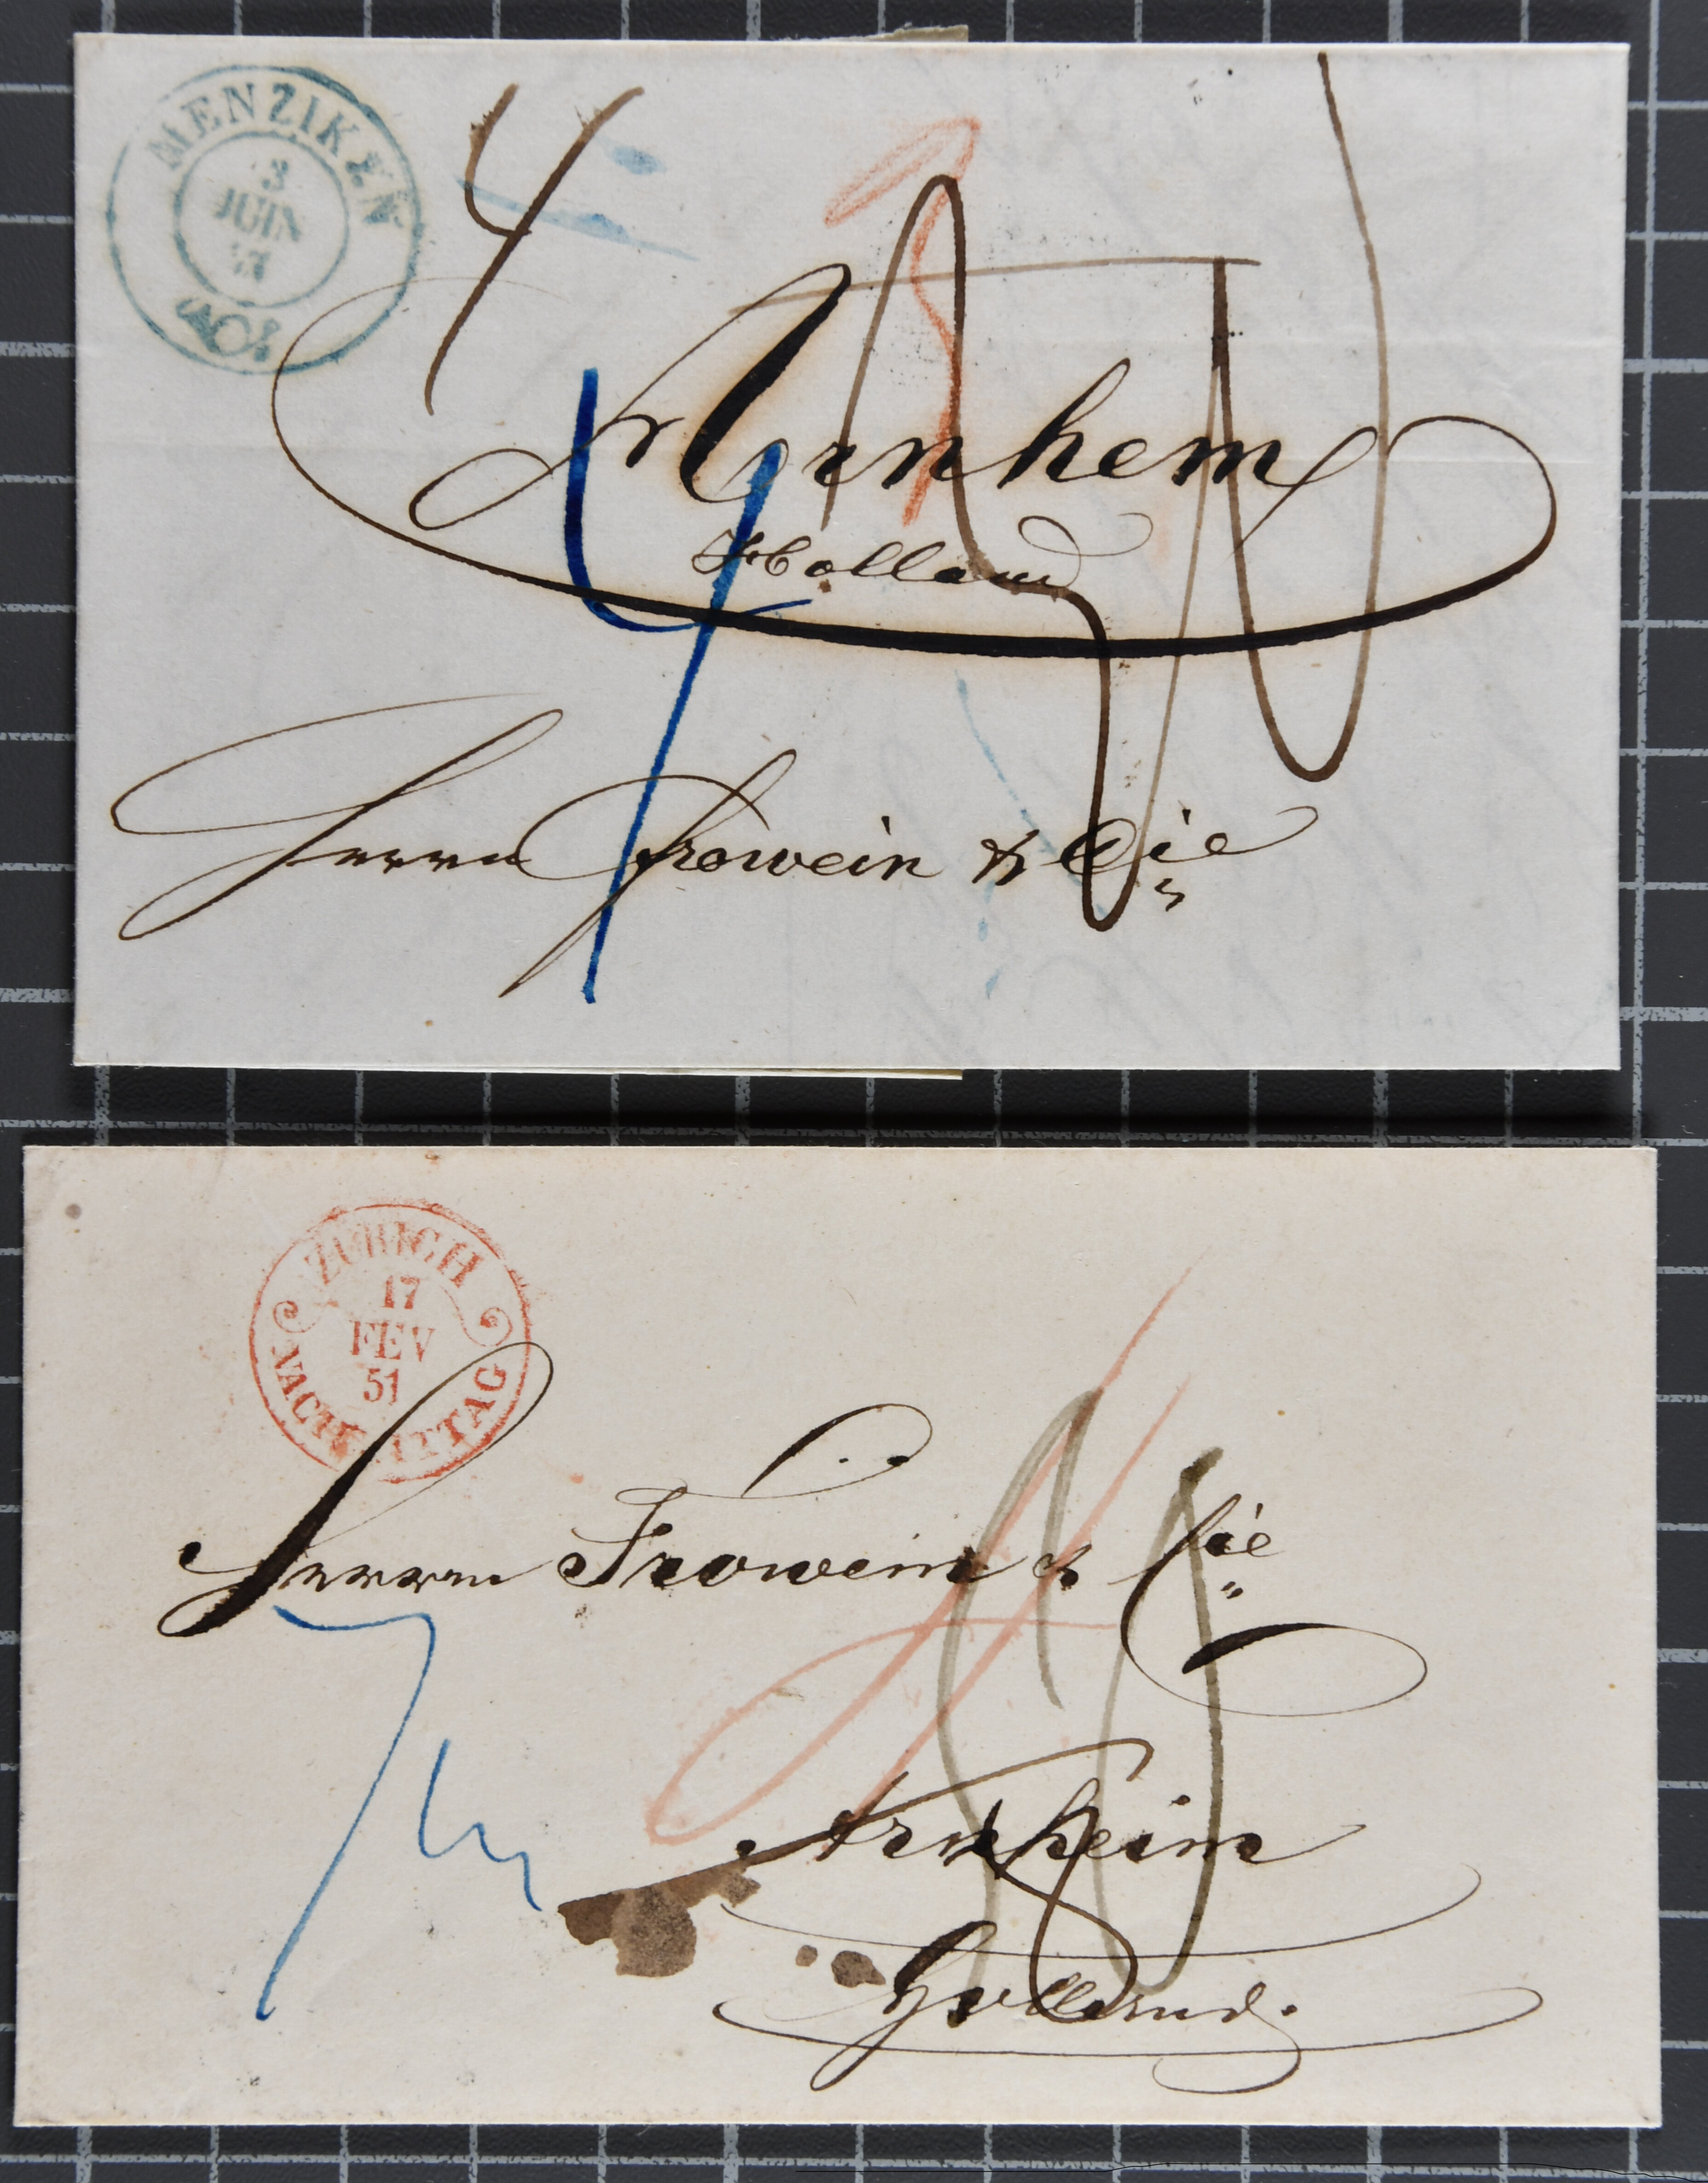 MENZIKEN
3
JUIN
4
Arnhem
Holland
Herrn Frowein & Cie
ZÜRICH
17
FEV
51
NACHMITTAG
Herrn Frowein & Cie
7
Arnheim
Holland.